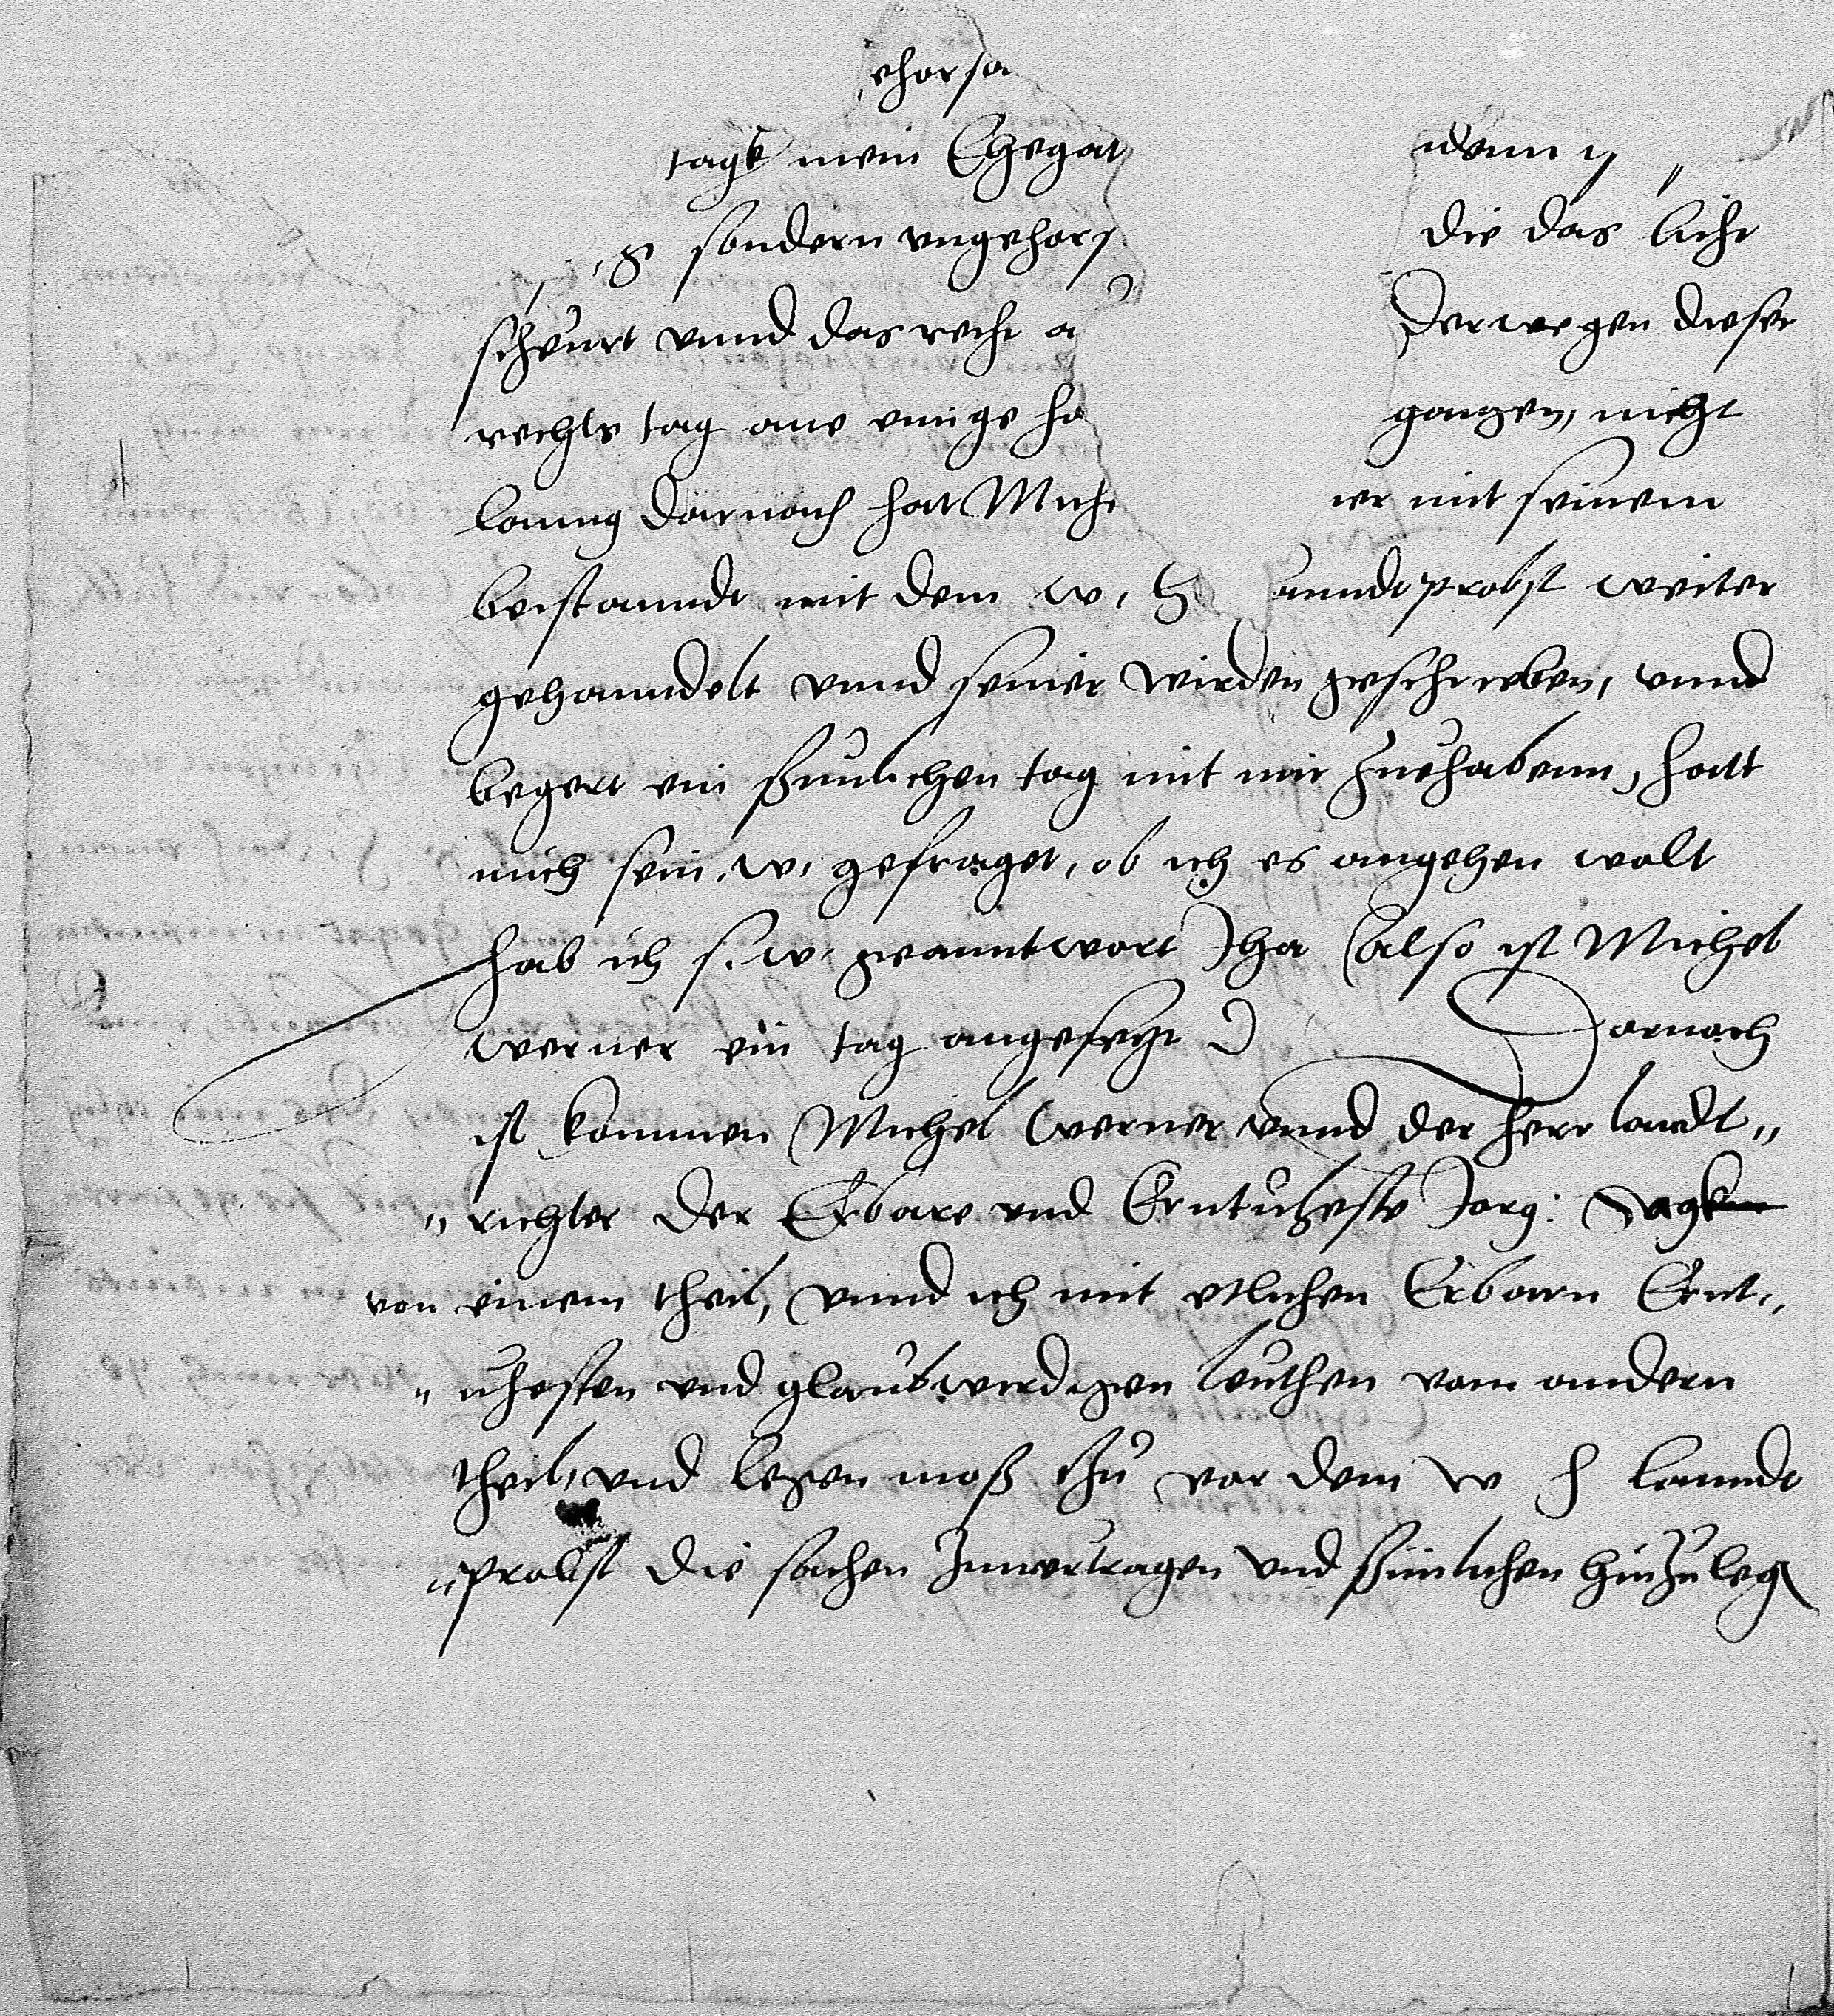 ehorsa
tagk mein Ehegat wenn
sondern vngehors die das licht
scheurt vnnd das recht a Derwegen dieser
rechts tag ane einige ha gangen, nicht
lanng darnach hat Miche er mit seinem
beistanndt mit dem w. h anndt probst weiter
gehanndelt vnnd seiner wirden geschrieben, vnnd
begert ein sunlichen tag mit mir zuehabenn, hatt
mich sein. w. gefraget, ob ich es angehen wolt
hab ich s. w. geanntwort Jha (also ist Michel
werner ein tag angesetzt) Darnach
ist kommen Michel werner vnnd der herr landt„
„richter der Erbare vnd Erntuheste Jorg:
von einem theil, vnnd ich mit etlichen Erbarn Ernt„
„uhesten vnd glaubwirdigen leuthen vom andern
theil, vnd legen moß thu vor dem w h lanndt
„probst die sachen zuuertragen vnd sunlichen hinzuleg